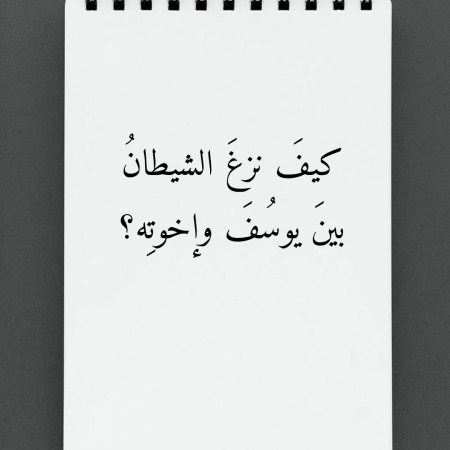 كيفَ نزغَ الشيطانُ
بينَ يوسُفَ وإخوتِه؟